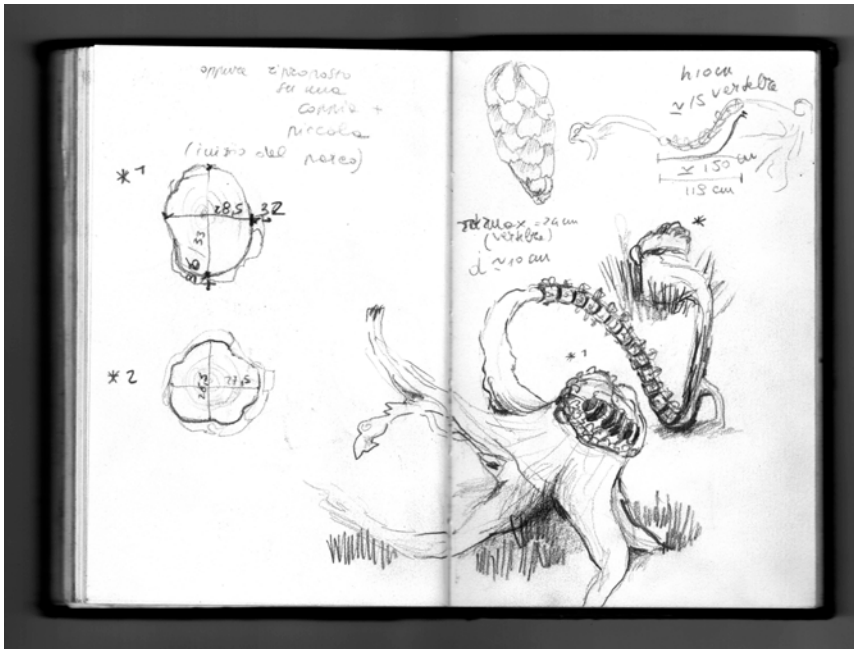 oppure riproposto
su una
coppia +
piccola
(inizio del parco)
*1
28,5
32
53
*2
28,5
27,5
h10cm
≃15 vertebre
≃ 150 cm
115 cm
max = 24cm
(vertebra)
d ≃10 cm
*
*1